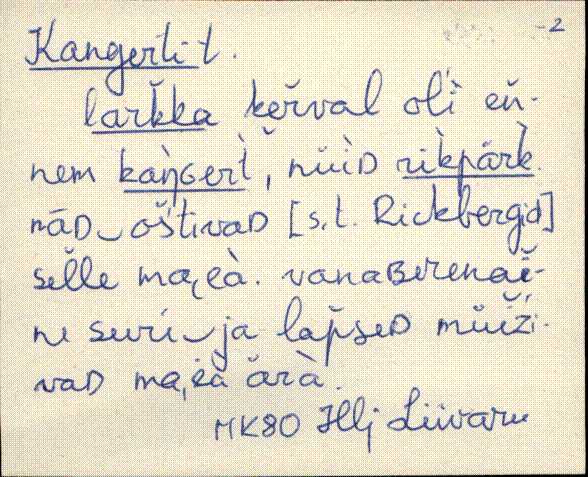 -2
Kangerti-t.
larška keřval oĺì eň-
nem kaŋ̀Gerť, nǜiD rìkpärk.
nāD‿oštivaD [s.t. Rickbergid]
selle maɪ̯eà. vanaBerenaĭ-
ne suri‿ja lapseD mǜiži-
vaD maɪ̯eà ärà.
MK80 Hlj Liivaru